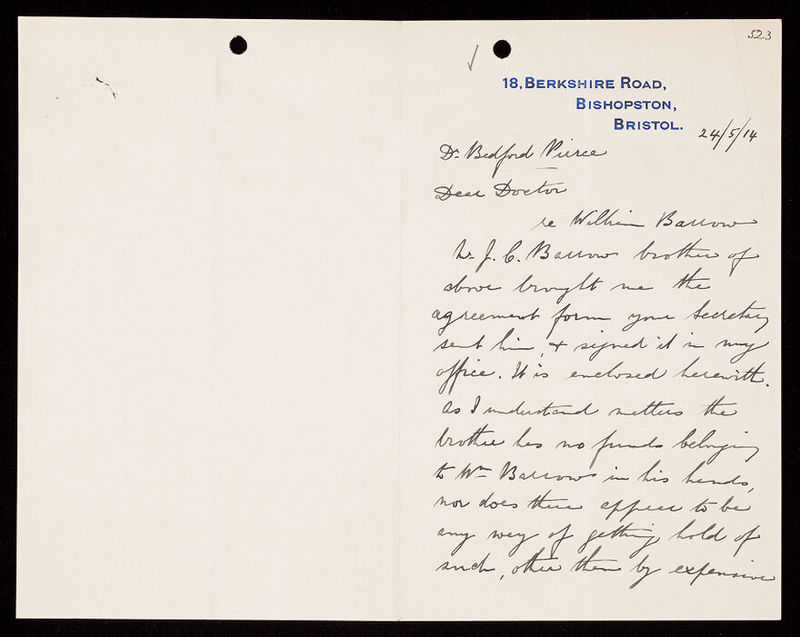 523
18, BERKSHIRE ROAD,
BISHOPSTON,
BRISTOL.
24/5/14
Dr Bedford Pierce
Dear Doctor
re William Barrow
Mr J. C. Barrow brother of
above brought me the
agreement form your Secretary
sent him, & signed it in my
office. It is enclosed herewith.
As I understand matters the
brother has no funds belonging
to Wm Barrow in his hands,
nor does there appear to be
any way of getting hold of
such, other than by expensive